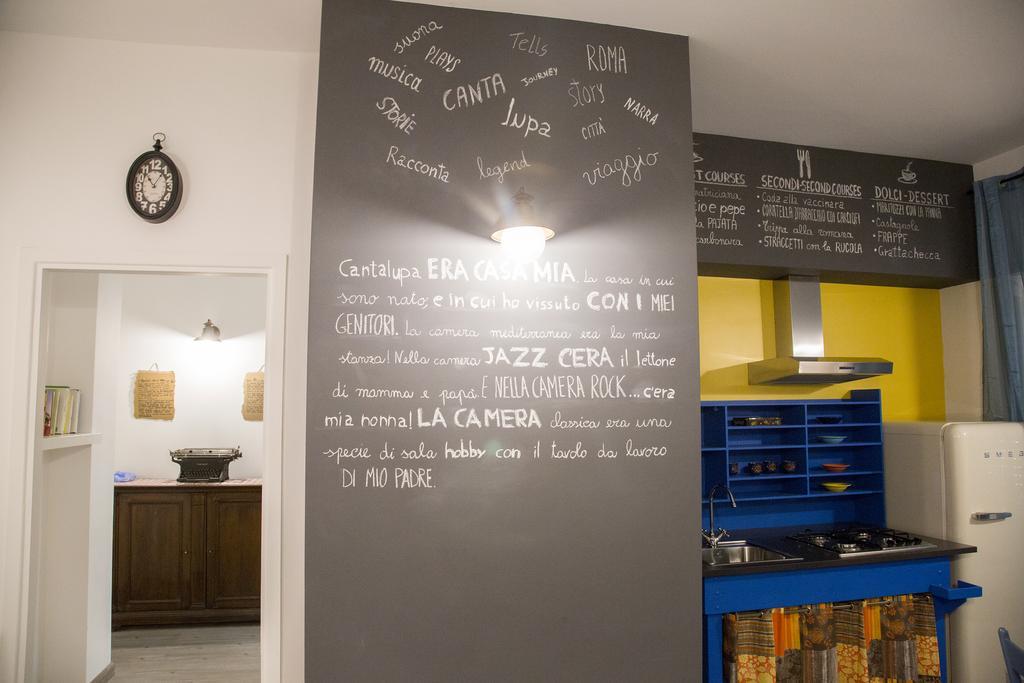 suona
PLAYS
Tells
ROMA
musica
CANTA
JOURNEY
story
STORIE
lupa
CITTÀ
NARRA
Racconta
legend
viaggio
Cantalupa ERA CASA MIA. La casa in cui
sono nato; e in cui ho vissuto CON I MIEI
GENITORI. La camera mediterranea era la mia
stanza! Nella camera JAZZ C'ERA il lettone
di mamma e papà. E NELLA CAMERA ROCK... c'era
mia nonna! LA CAMERA classica era una
specie di sala hobby con il tavolo da lavoro
DI MIO PADRE.
T COURSES
matriciana
cio e pepe
la PAJATA
carbonara
SECONDI-SECOND COURSES
• Coda alla vaccinara
• CORATELLA D'ABBACCHIO COI CARCIOFI
• Trippa alla romana
• STRACCETTI con la RUCOLA
DOLCI-DESSERT
• MARITOZZI CON LA PANNA
• Castagnole
• FRAPPE
• Grattachecca
SMEG